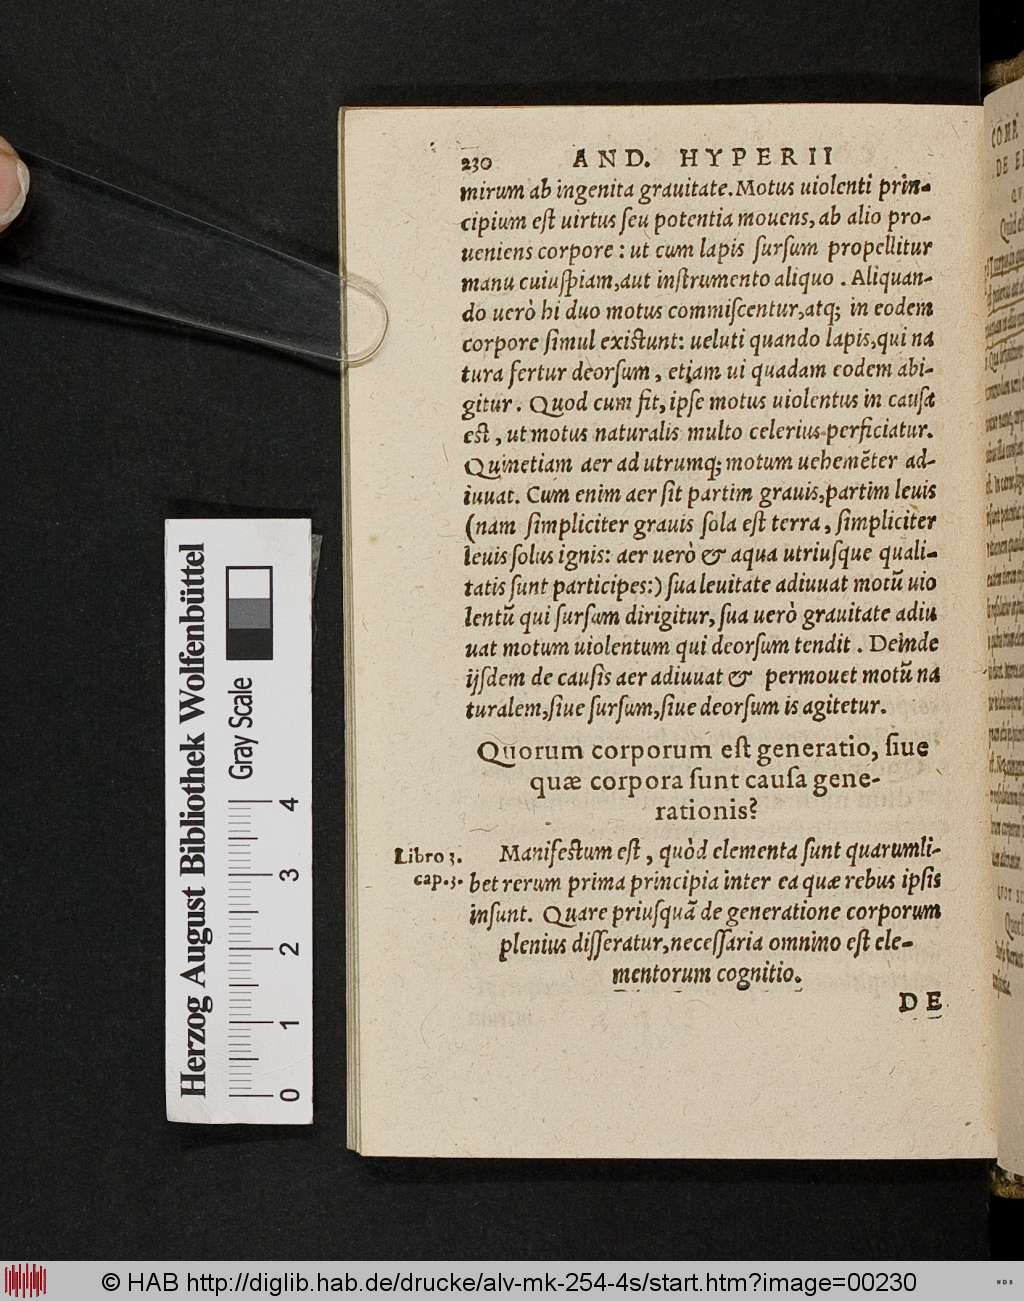 230 AND. HYPERII
mirum ab ingenita grauitate. Motus uiolenti prin-
cipium eſt uirtus ſeu potentia mouens, ab alio pro-
ueniens corpore : ut cum lapis ſurſum propellitur
manu cuiuſpiam, aut inſtrumento aliquo . Aliquan-
do uerò hi duo motus commiſcentur, atq; in eodem
corpore ſimul exiſtunt: ueluti quando lapis, qui na
tura fertur deorſum , etiam ui quadam eodem abi-
gitur . Quod cum fit, ipſe motus uiolentus in cauſa
eſt , ut motus naturalis multo celerius perficiatur.
Quinetiam aer ad utrumq; motum uehemẽter ad-
iuuat. Cum enim aer ſit partim grauis, partim leuis
(nam ſimpliciter grauis ſola eſt terra , ſimpliciter
leuis ſolus ignis: aer uerò & aqua utriuſque quali-
tatis ſunt participes:) ſua leuitate adiuuat motũ uio
lentũ qui ſurſum dirigitur, ſua uerò grauitate adiu
uat motum uiolentum qui deorſum tendit . Deinde
ijſdem de cauſis aer adiuuat & permouet motũ na
turalem, ſiue ſurſum, ſiue deorſum is agitetur.
Quorum corporum eſt generatio, ſiue
quæ corpora ſunt cauſa gene-
rationis?
Libro 3. Manifeſtum eſt , quòd elementa ſunt quarumli-
cap. 3. bet rerum prima principia inter ea quæ rebus ipſis
inſunt. Quare priuſquã de generatione corporum
plenius diſſeratur, neceſſaria omnino eſt ele-
mentorum cognitio.
DE
Herzog August Bibliothek Wolfenbüttel
Gray Scale
0 1 2 3 4
© HAB http://diglib.hab.de/drucke/alv-mk-254-4s/start.htm?image=00230